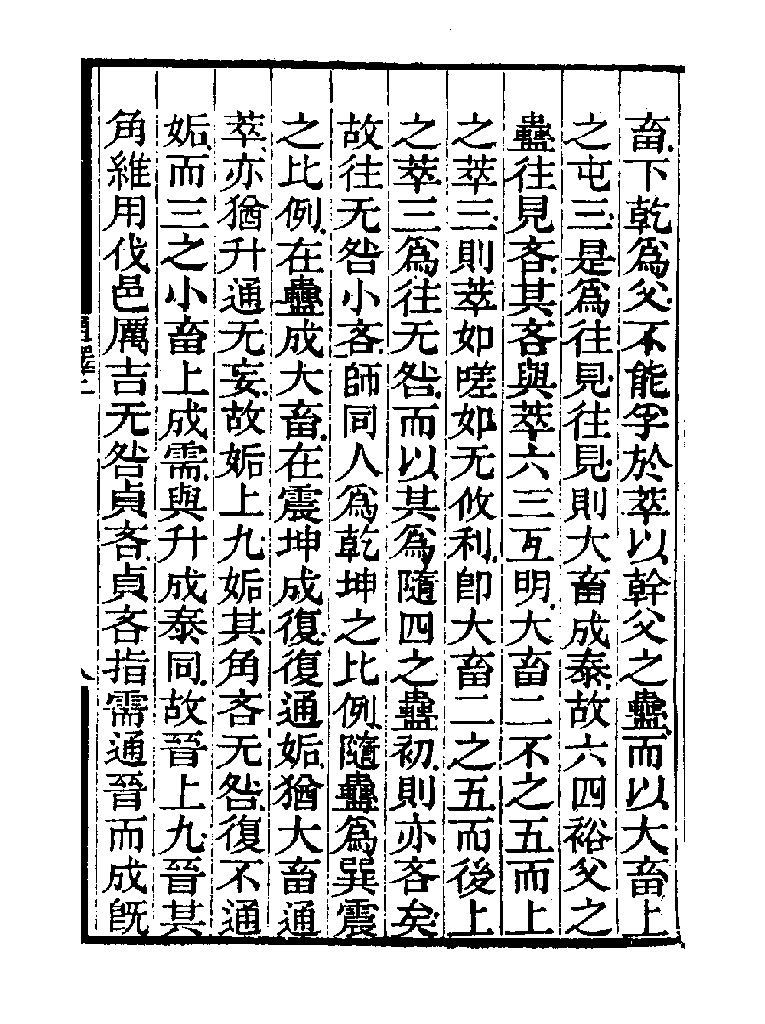 畜下乾爲父不能孚於萃以幹父之蠱而以大畜上
之屯三是爲往見往見則大畜成泰故六四裕父之
蠱往見吝其吝與萃六三互明大畜二不之五而上
之萃三則萃如嗟如无攸利卽大畜二之五而後上
之萃三爲往无咎而以其爲隨四之蠱初則亦吝矣
故往无咎小吝師同人爲乾坤之比例隨蠱爲巽震
之比例在蠱成大畜在震坤成復復通姤猶大畜通
萃亦猶升通无妄故姤上九姤其角吝无咎復不通
姤而三之小畜上成需與升成泰同故晉上九晉其
角維用伐邑厲吉无咎貞吝貞吝指需通晉而成旣
通釋二
八